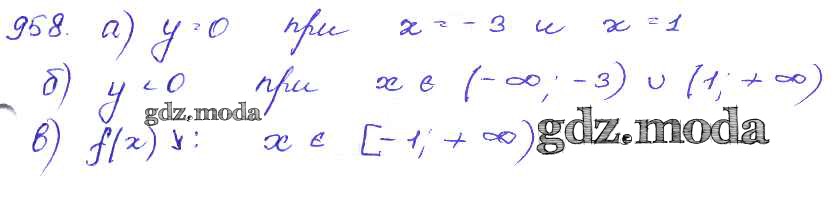 958. а) y = 0 при x = -3 и x = 1
б) y < 0 при x ∈ (-∞; -3) ∪ (1; +∞)
gdz.moda
в) f(x) ↘: x ∈ [-1; +∞)
gdz.moda